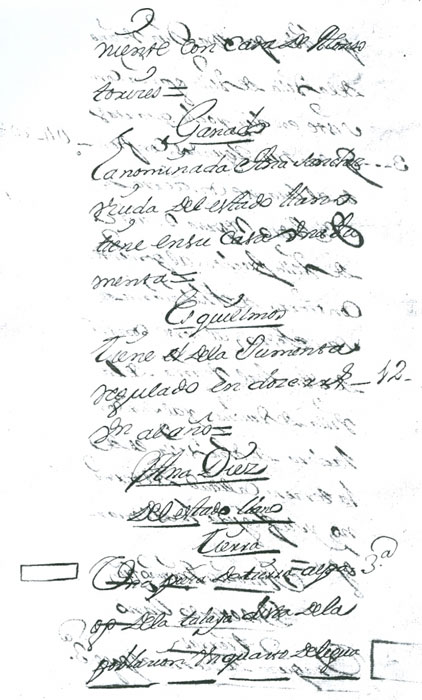 niente con casa de Alonso
torires=
Ganado
La nominada Ana Sanchez
viuda del estado llano
tiene en su casa una Ju
menta=
Esquilmos
Tiene el de la Jumenta
regulado en doze rr.s 12.
vn al año=
Ana Diez
del estado llano
Tierra
Una pieza de tierra 3.a
de la dista de la
poblacion un quarto de legua